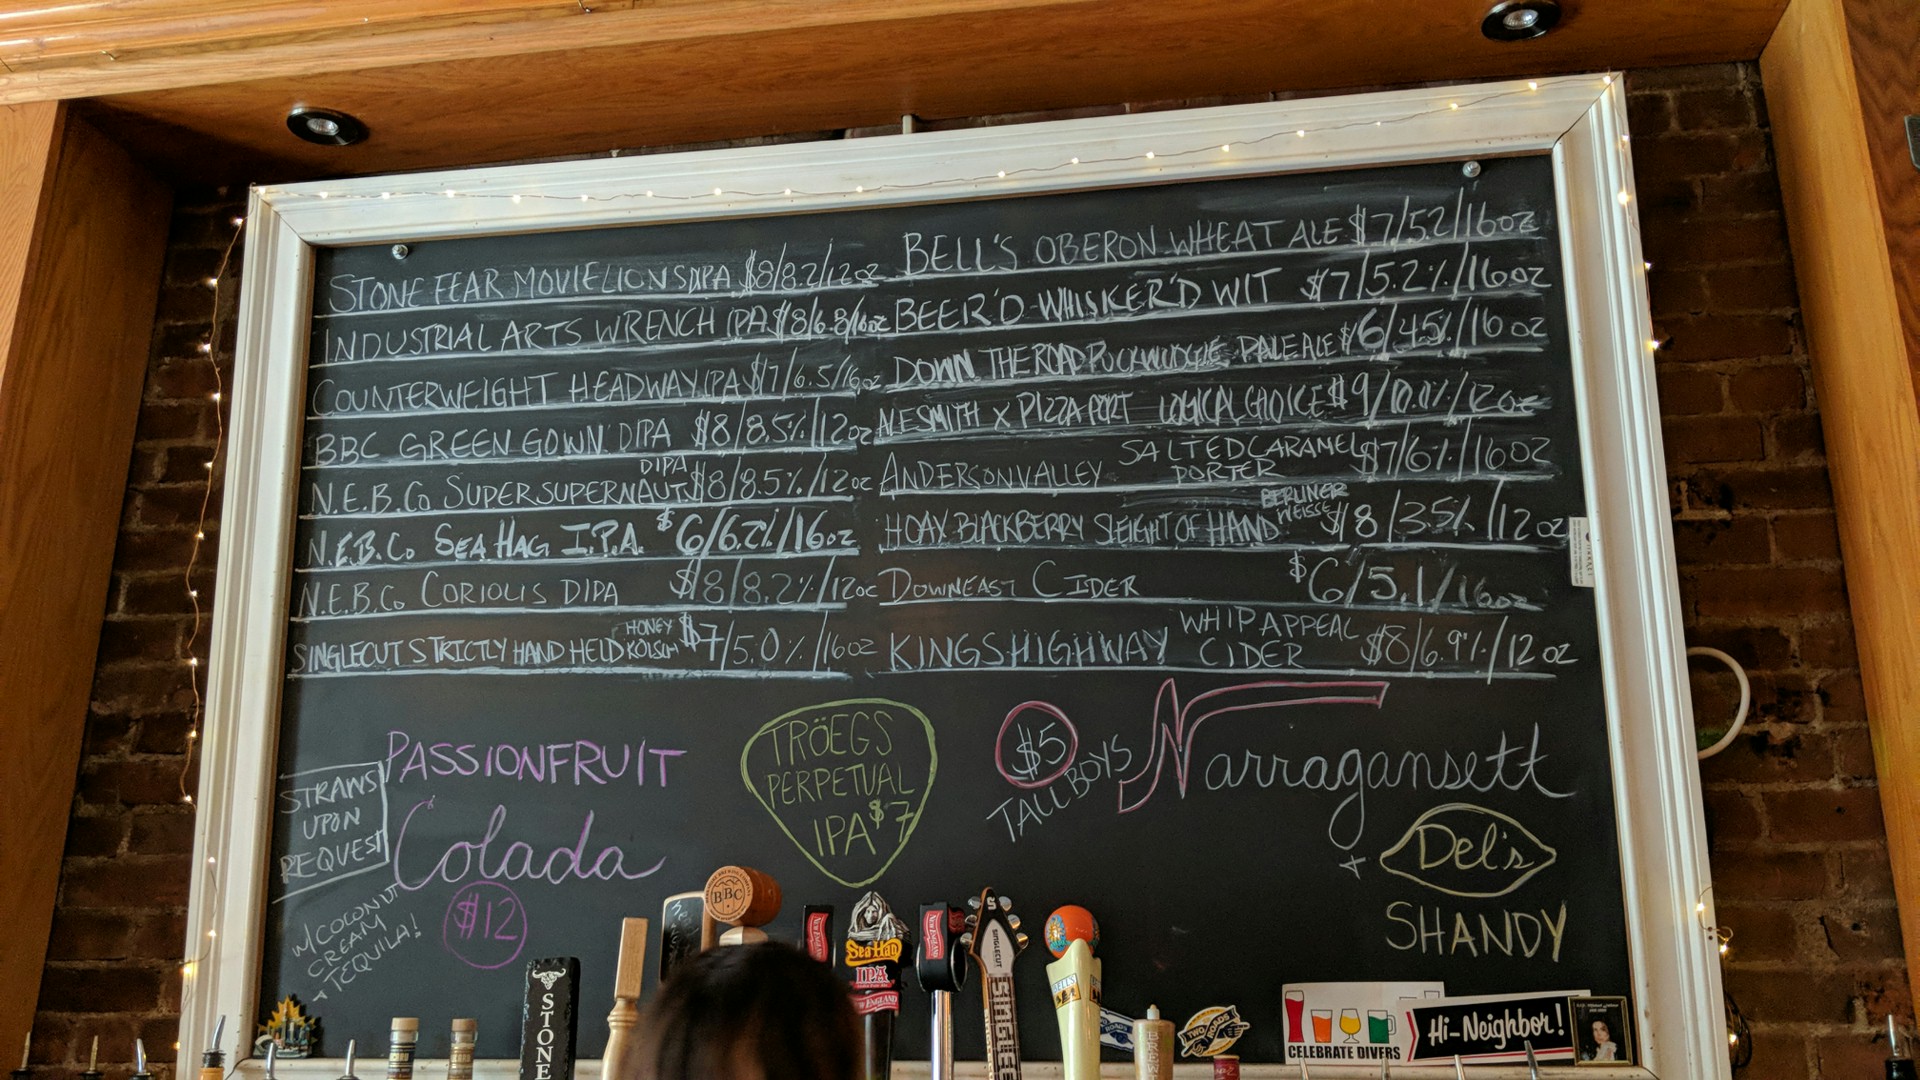 STONE FEAR MOVIE LIONS DIPA $8/8.2/12oz
INDUSTRIAL ARTS WRENCH IPA $8/6.8/16oz
COUNTERWEIGHT HEADWAY IPA $7/6.5/16oz
BBC GREEN GOWN DIPA $8/8.5%/12oz
N.E.B.Co SUPERSUPERNAUT DIPA $8/8.5%/12oz
N.E.B.Co SEA HAG I.P.A. $6/6.2%/16oz
N.E.B.Co CORIOLIS DIPA $8/8.2%/12oz
SINGLECUT STRICTLY HAND HELD HONEY KÖLSCH $7/5.0%/16oz
BELL'S OBERON WHEAT ALE $7/5.2/16oz
BEER'D WHISKER'D WIT $7/5.2%/16oz
DOWN THE ROAD PUCKWUDGIE PALE ALE $6/4.5%/16oz
ALESMITH X PIZZA PORT LOGICAL CHOICE $9/10.1%/12oz
ANDERSON VALLEY SALTED CARAMEL PORTER $7/6%/16oz
HOAX BLACKBERRY SLEIGHT OF HAND BERLINER WEISSE $8/3.5%/12oz
DOWNEAST CIDER $6/5.1/16oz
KINGS HIGHWAY WHIP APPEAL CIDER $8/6.9%/12oz
STRAWS
UPON
REQUEST
PASSIONFRUIT
Colada
$12
W/ COCONUT
CREAM
+ TEQUILA!
TRÖEGS
PERPETUAL
IPA $7
$5
TALL BOYS
Narragansett
+ Del's
SHANDY
BBC
STONE
NEW ENGLAND
Sea Hag
IPA
NEW ENGLAND
NEW ENGLAND
SINGLECUT
SINGLEC
BELL'S
BREW
TWO ROADS
CELEBRATE DIVERS
Hi-Neighbor!